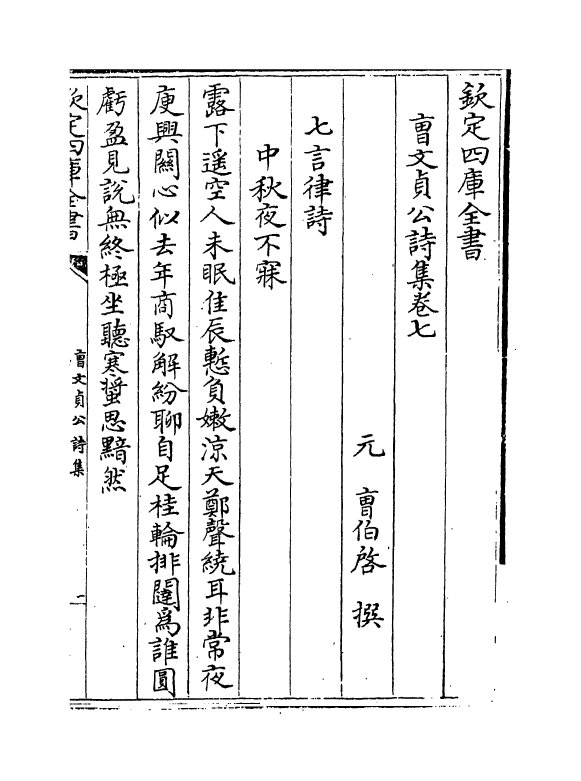 欽定四庫全書
曺文貞公詩集卷七
元 曺伯啓 撰
七言律詩
中秋夜不寐
露下遥空人未眠佳辰慙負嫩涼天鄭聲繞耳非常夜
庾興關心似去年商馭解紛聊自足桂輪排闥爲誰圓
虧盈見說無終極坐聽寒螿思黯然
欽定四庫全書
曺文貞公詩集